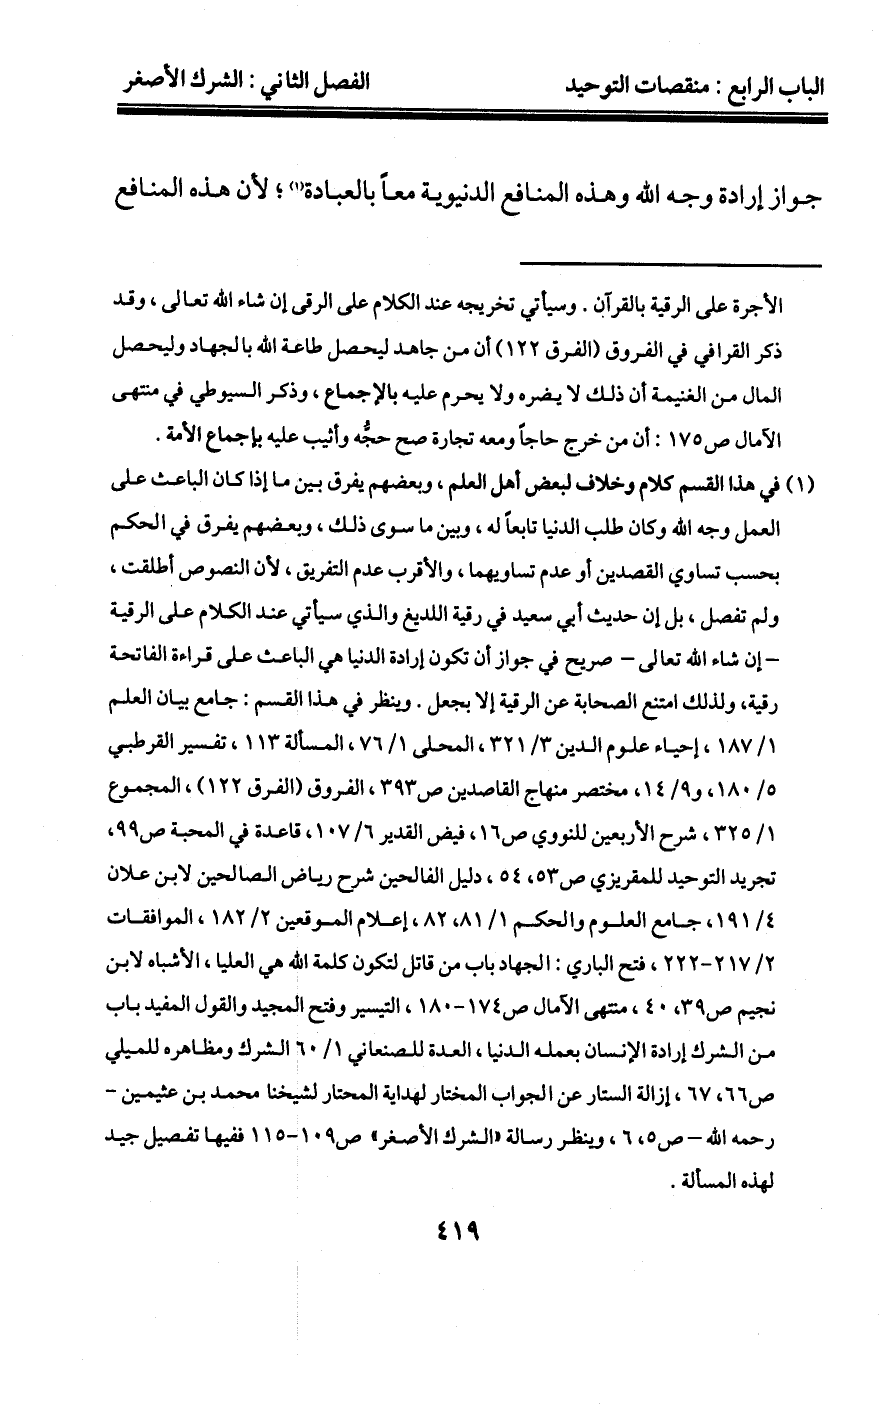 الباب الرابع : منقصات التوحيد الفصل الثاني : الشرك الأصغر
جواز إرادة وجه الله وهذه المنافع الدنيوية معاً بالعبادة(١) ؛ لأن هذه المنافع
الأجرة على الرقية بالقرآن . وسيأتي تخريجه عند الكلام على الرقى إن شاء الله تعالى ، وقد
ذكر القرافي في الفروق (الفرق ١٢٢) أن من جاهد ليحصل طاعة الله بالجهاد وليحصل
المال من الغنيمة أن ذلك لا يضره ولا يحرم عليه بالإجماع ، وذكر السيوطي في منتهى
الآمال ص١٧٥ : أن من خرج حاجاً ومعه تجارة صح حجُّه وأثيب عليه بإجماع الأمة .
(١) في هذا القسم كلام وخلاف لبعض أهل العلم ، وبعضهم يفرق بين ما إذا كان الباعث على
العمل وجه الله وكان طلب الدنيا تابعاً له ، وبين ما سوى ذلك ، وبعضهم يفرق في الحكم
بحسب تساوي القصدين أو عدم تساويهما ، والأقرب عدم التفريق ، لأن النصوص أطلقت ،
ولم تفصل ، بل إن حديث أبي سعيد في رقية اللديغ والذي سيأتي عند الكلام على الرقية
–إن شاء الله تعالى – صريح في جواز أن تكون إرادة الدنيا هي الباعث على قراءة الفاتحة
رقية، ولذلك امتنع الصحابة عن الرقية إلا بجعل . وينظر في هذا القسم : جامع بيان العلم
١/ ١٨٧ ، إحياء علوم الدين ٣/ ٣٢١ ، المحلى ١/ ٧٦ ، المسألة ١١٣ ، تفسير القرطبي
٥/ ١٨٠، و٩/ ١٤، مختصر منهاج القاصدين ص٣٩٣ ، الفروق (الفرق ١٢٢) ، المجموع
١/ ٣٢٥ ، شرح الأربعين للنووي ص١٦، فيض القدير ٦/ ١٠٧ ، قاعدة في المحبة ص٩٩،
تجريد التوحيد للمقريزي ص٥٣، ٥٤ ، دليل الفالحين شرح رياض الصالحين لابن علان
٤/ ١٩١، جامع العلوم والحكم ١/ ٨١، ٨٢ ، إعلام الموقعين ٢/ ١٨٢ ، الموافقات
٢/ ٢١٧–٢٢٢ ، فتح الباري : الجهاد باب من قاتل لتكون كلمة الله هي العليا ، الأشباه لابن
نجيم ص٣٩، ٤٠ ، منتهى الآمال ص١٧٤–١٨٠ ، التيسير وفتح المجيد والقول المفيد باب
من الشرك إرادة الإنسان بعمله الدنيا ، العدة للصنعاني ١/ ٦٠ الشرك ومظاهره للميلي
ص٦٦، ٦٧ ، إزالة الستار عن الجواب المختار لهداية المحتار لشيخنا محمد بن عثيمين –
رحمه الله – ص٥، ٦ ، وينظر رسالة «الشرك الأصغر» ص١٠٩–١١٥ ففيها تفصيل جيد
لهذه المسألة .
٤١٩